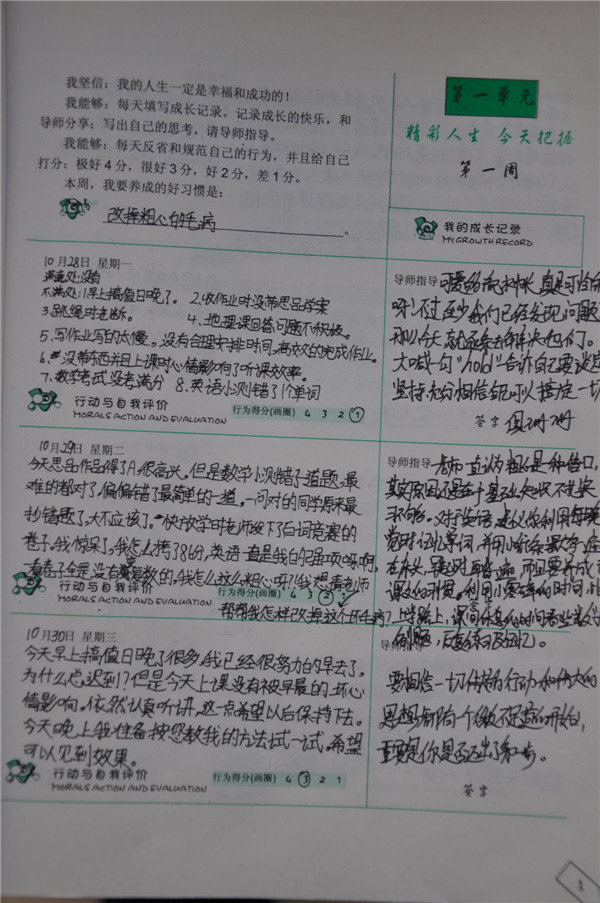 我坚信：我的人生一定是幸福和成功的！
我能够：每天填写成长记录。记录成长的快乐，和
导师分享；写出自己的思考，请导师指导。
我能够：每天反省和规范自己的行为，并且给自己
打分：极好4分，很好3分，好2分，差1分。
本周，我要养成的好习惯是：
改掉粗心的毛病。
第一单元
精彩人生 今天把握
第一周
我的成长记录
MY GROWTH RECORD
10月28日 星期一
满意处：没有
不满处：1.早上搞值日晚了。 2.收作业时没带思品学案
3.跳绳时老断。 4.地理课回答问题不积极。
5.写作业写的太慢。没有合理安排时间，高效的完成作业。
6.没带东西并且上课时心情影响了听课效率。
7.数学考试没考满分 8.英语小测错了1个单词
行动与自我评价
MORALS ACTION AND EVALUATION
行为得分(画圈) 4 3 2 1
导师指导
呀！不过至少我们已经发现问题
大喊一句"no!"告诉自己要淡定
坚持，充分相信自己可以搞定一切
签字
10月29日 星期二
今天思品作品得了A，很高兴。但是数学小测错了道题，最
难的都对了，偏偏错了最简单的一道。一问对的同学原来是
抄错题了。大不应该了。快放学时老师发下了白词竞赛的
卷子。我惊呆了，我怎么考了86分，英语一直是我的强项呀，啊，
看卷子全是没有复数的，我怎么这么粗心呀？！我想请老师
帮帮我怎样改掉这个坏毛病？
行动与自我评价
MORALS ACTION AND EVALUATION
行为得分(画圈) 4 3 2 1
导师指导 老师一直认为粗心是一种借口，
其实原因还是在于基础知识不扎实
课文的习惯。利用小零碎的时间，比
上学路上，课间休息的时间看些数学
例题，反复练习及回忆。
10月30日 星期三
今天早上搞值日晚了很多，我已经很努力的早去了。
为什么总迟到？但是今天上课没有被早晨的坏心
情影响。依然认真听讲，这一点希望以后保持下去。
今天晚上我准备按您教我的方法试一试。希望
可以见到效果。
行动与自我评价
MORALS ACTION AND EVALUATION
行为得分(画圈) 4 3 2 1
导师指导
要相信一切伟大的行动和伟大的
思想，都有一个微不足道的开始，
重要是你是否迈出了第一步。
签字
1